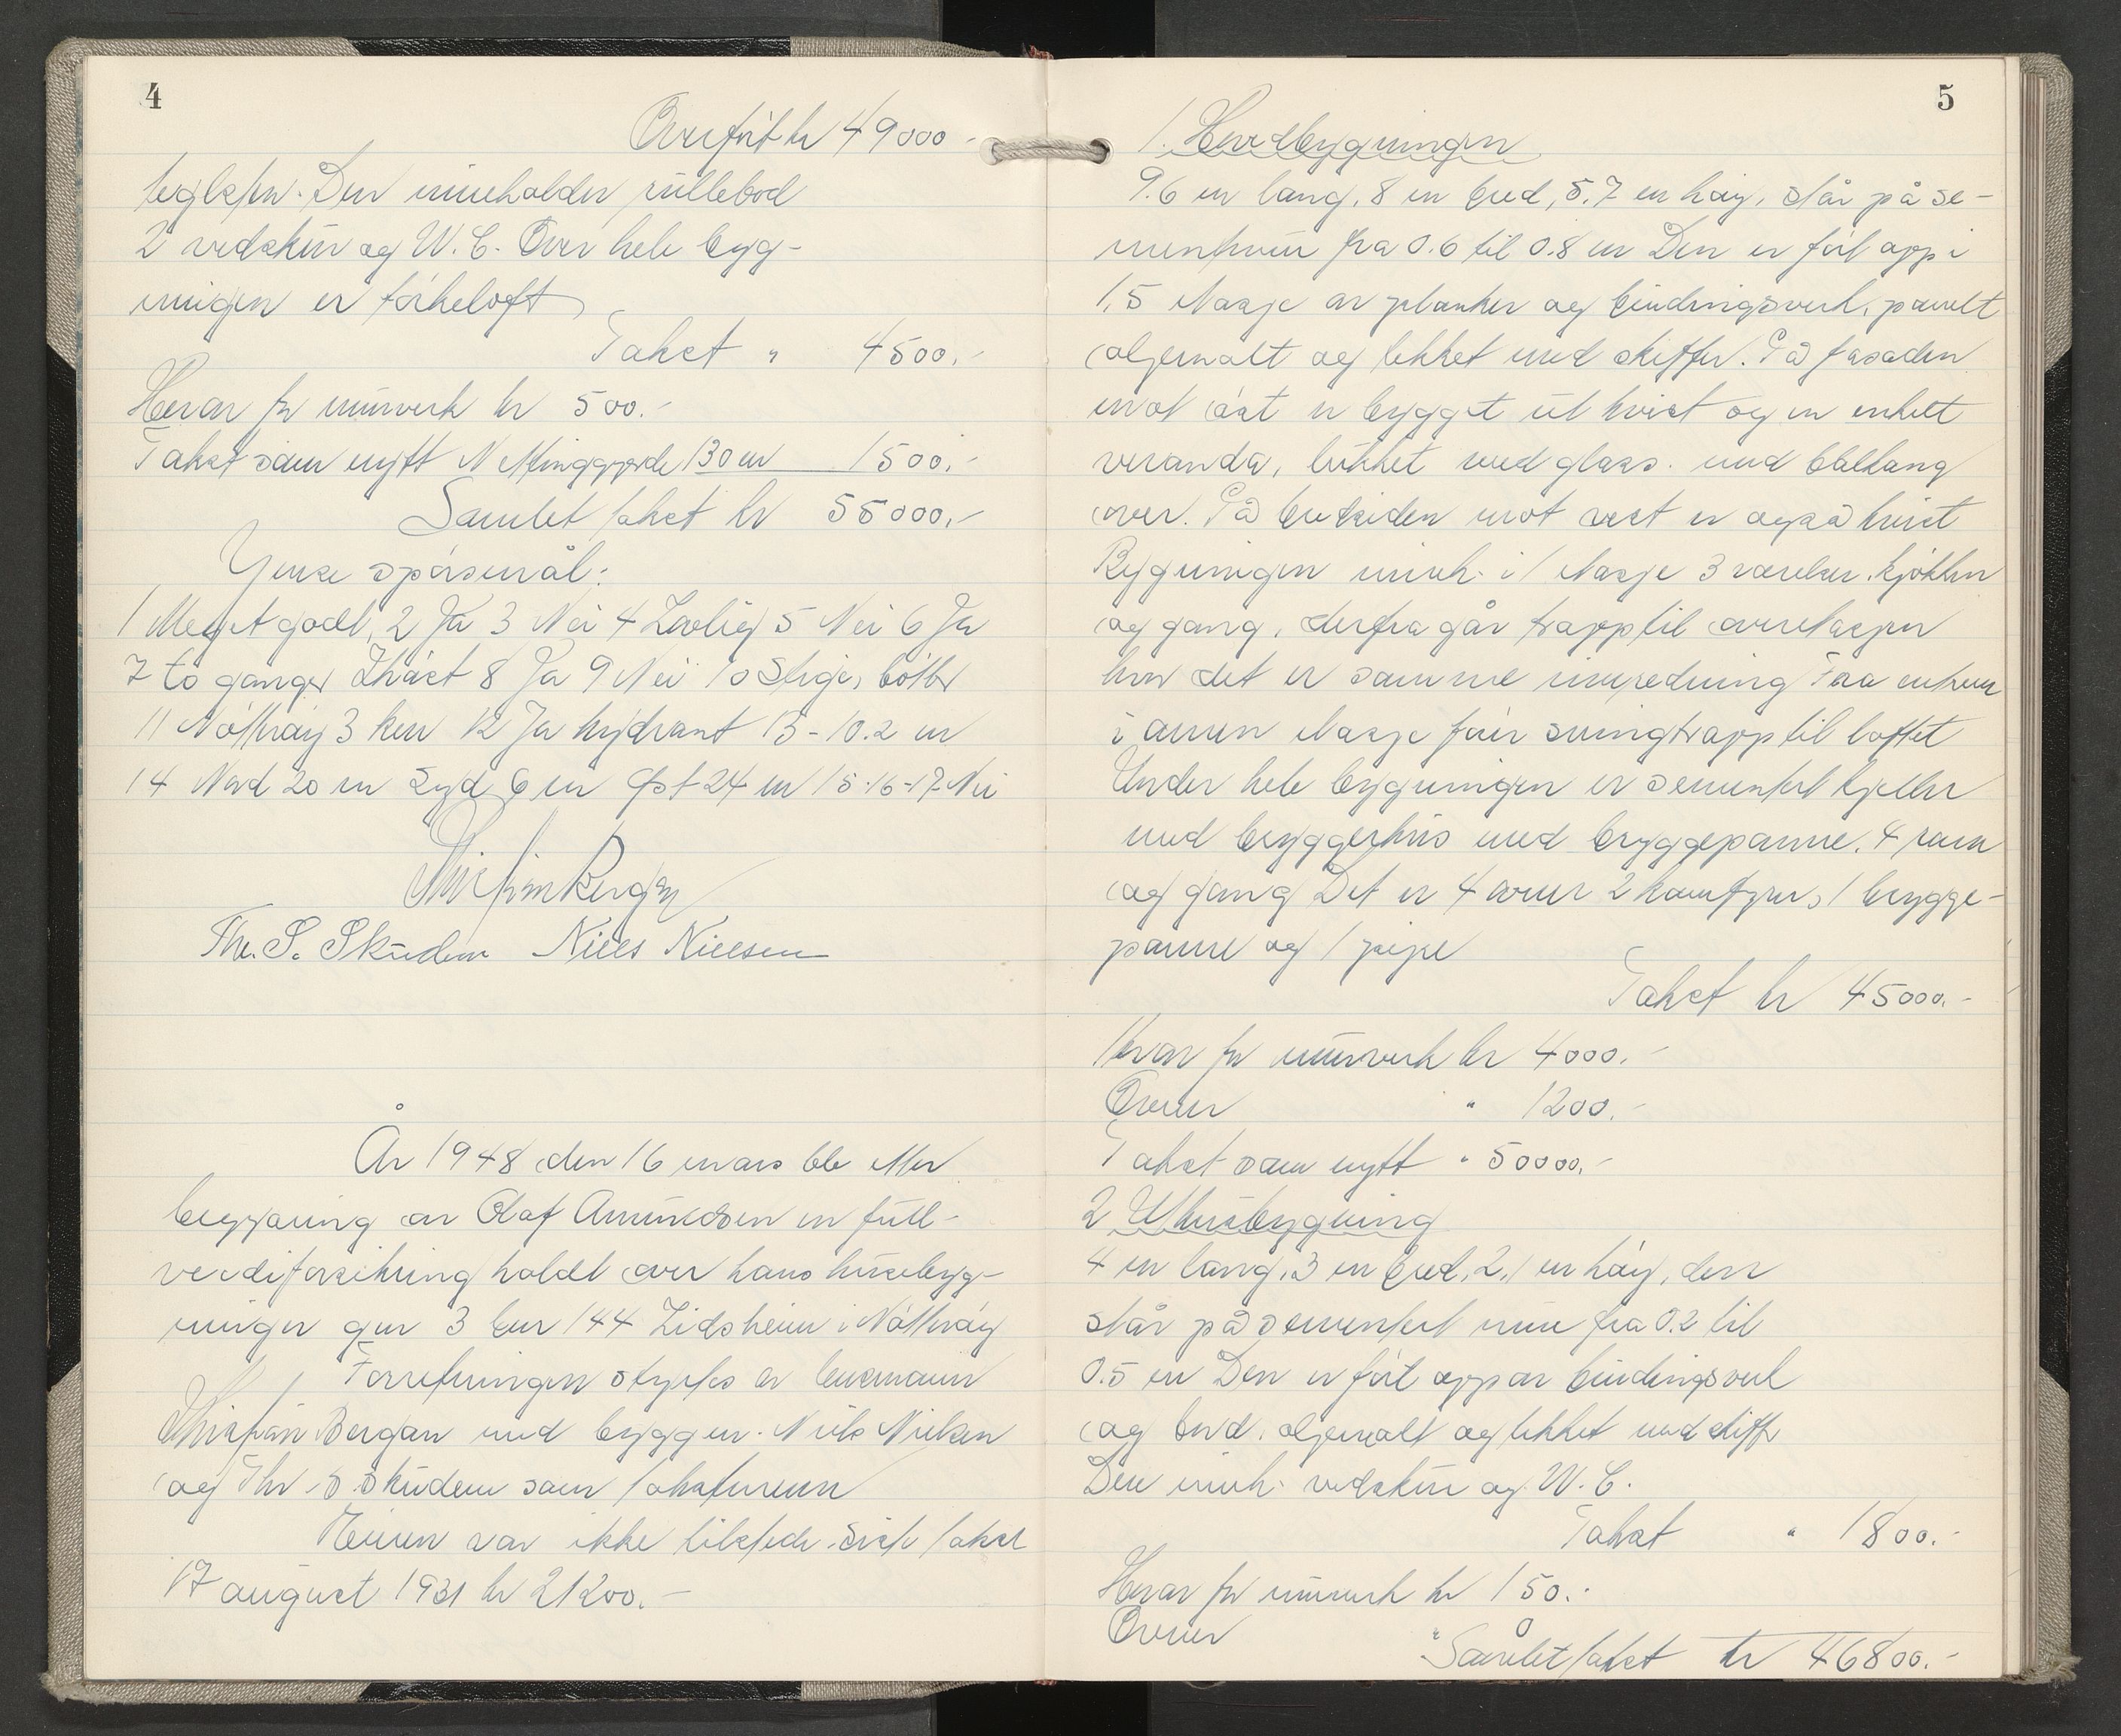 4
Overført kr 49000 -
teglsten. Den inneholder rullebod
2 vedskur og W.C. Over hele byg-
ningen er tørkeloft
Takst " 4500.-
Herav for murverk kr 500.-
Takst som nytt N 130 m 1500.-
Samlet takst kr 55000,-
Ymse spørsmål:
1 Meget godt, 2 Ja 3 Nei 4 Lovlig 5 Nei 6 Ja
7 to ganger 8 Ja 9 Nei 10 Stige, bøtter
11 Nøtterøy 3 km 12 Ja hydrant 13 - 10.2 m
14 Nord 20 m Syd 6 m Øst 24 m 15-16-17 Nei
Thv. S. Skudem Niels Nielsen
År 1948 den 16 mars ble etter
begjæring av Olaf Amundsen en full-
verdiforsikring holdt over hans husebyg-
ninger gnr 3 bnr 144 Lidsheim i Nøtterøy
Forretningen styrtes av lensmann
Bergan med byggm. Niels Nielsen
og Thv S. Skudem som takstmenn
Eieren var ikke tilstede. Siste takst
17 august 1931 kr 21200.-
5
1. Hovedbygningen
9.6 m lang, 8 m bred, 5.7 m høy, står på se-
mentmur fra 0.6 til 0.8 m Den er ført opp i
1,5 etasje av planker og bindingsverk, panelt
oljemalt og tekket med skiffer. På fasaden
mot øst er bygget ut kvist og en enkelt
veranda, lukket med glass. med balkong
over. På baksiden mot vest er også kvist
Bygningen inneh. i 1 etasje 3 værelser, kjøkken
og gang, derfra går trapp til overetasjen
hvor det er samme innredning Fra
i annen etasje fører svingtrapp til loftet
Under hele bygningen er sementert kjeller
med bryggerhus med bryggepanne. 4 rum
og gang Det er 4 ovner 2 komfyrer, 1 brygge-
panne og 1 pipe
Takst kr 45000.-
Herav for murverk kr 4000.-
Ovner " 1200.-
Takst som nytt " 50000.-
2 Uthusbygning
4 m lang, 3 m bred, 2,1 m høy, den
står på sementert mur fra 0.2 til
0.5 m Den er ført opp av bindingsverk
og bord. oljemalt og tekket med skiffer
Den inneh. vedskur og W.C.
Takst " 1800.-
Herav for murverk kr 150.-
Ovner " 0
Samlet takst kr 46800.-